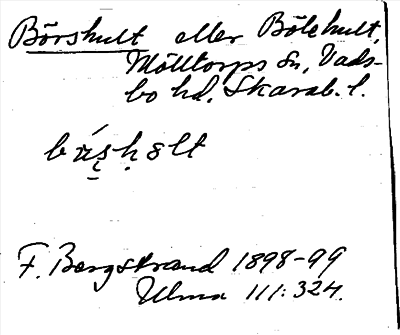 Börshult eller Bölehult,
Mölltorps sn, Vads-
bo hd, Skarab. l.
F. Bergstrand 1898-99
Ulma 111:324.